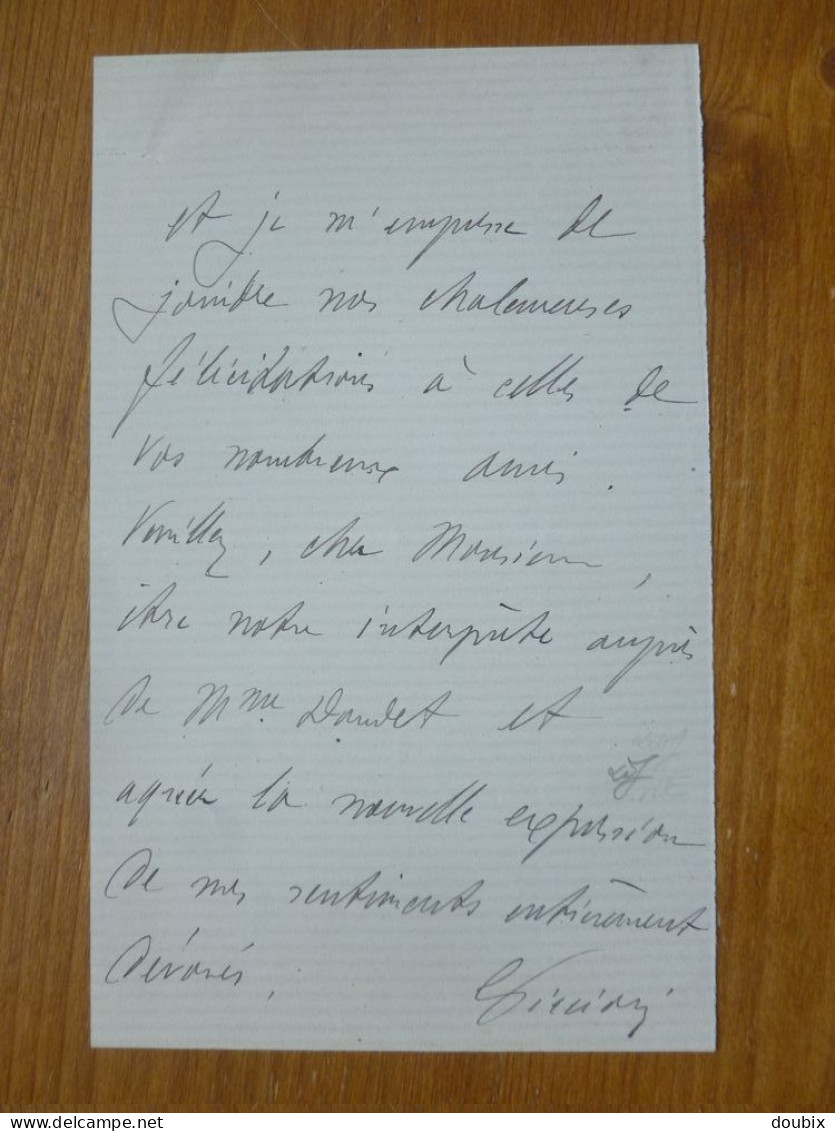 et je m'empresse de
joindre nos chaleureuses
félicitations à celles de
vos nombreux amis.
Veuillez, cher Monsieur,
être notre interprète auprès
de Mme Daudet et
agréer la nouvelle expression
de mes sentiments entièrement
dévoués.
website : delcampe.net
doubix